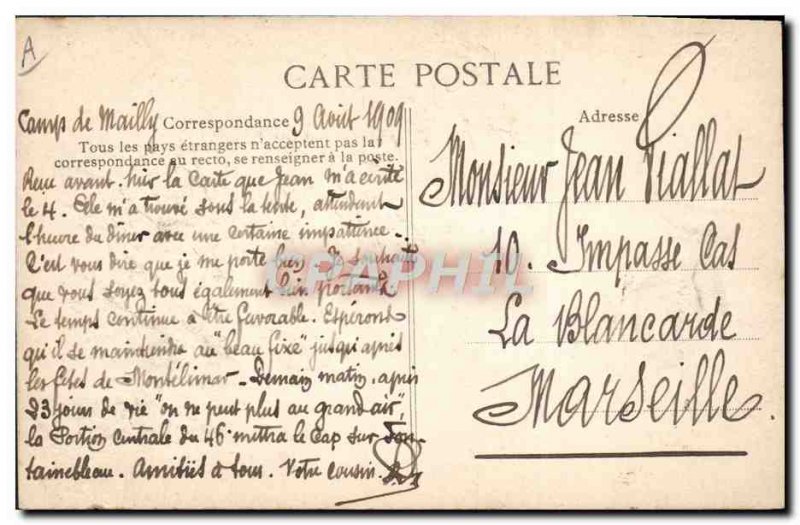 A
CARTE POSTALE
Camp de Mailly Correspondance 9 Août 1909
Tous les pays étrangers n'acceptent pas la
correspondance au recto, se renseigner à la poste.
Adresse
Reçu avant-hier la Carte que Jean m'a écrite
le 4. Elle m'a trouvé sous la tente, attendant
l'heure du dîner avec une certaine impatience.
C'est vous dire que je me porte bien. Je souhaite
que vous soyez tous également bien portants.
Le temps continue à être favorable. Espérons
qu'il se maintiendra au "beau fixe" jusqu'après
les fêtes de Montélimar. Demain matin, après
23 jours de vie "on ne peut plus au grand air",
la Portion Centrale du 46e mettra le Cap sur Fon-
tainebleau. Amitiés à tous. Votre cousin.
Monsieur Jean Viallat
10. Impasse Cas
La Blancarde
Marseille.
CPAPHIL